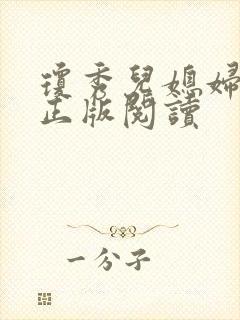 瓊秀兒媳婦
正版閱讀
一分子